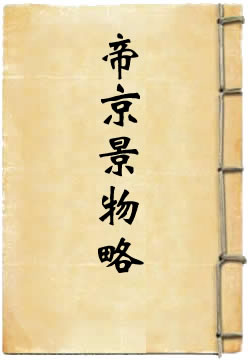 帝京景物略